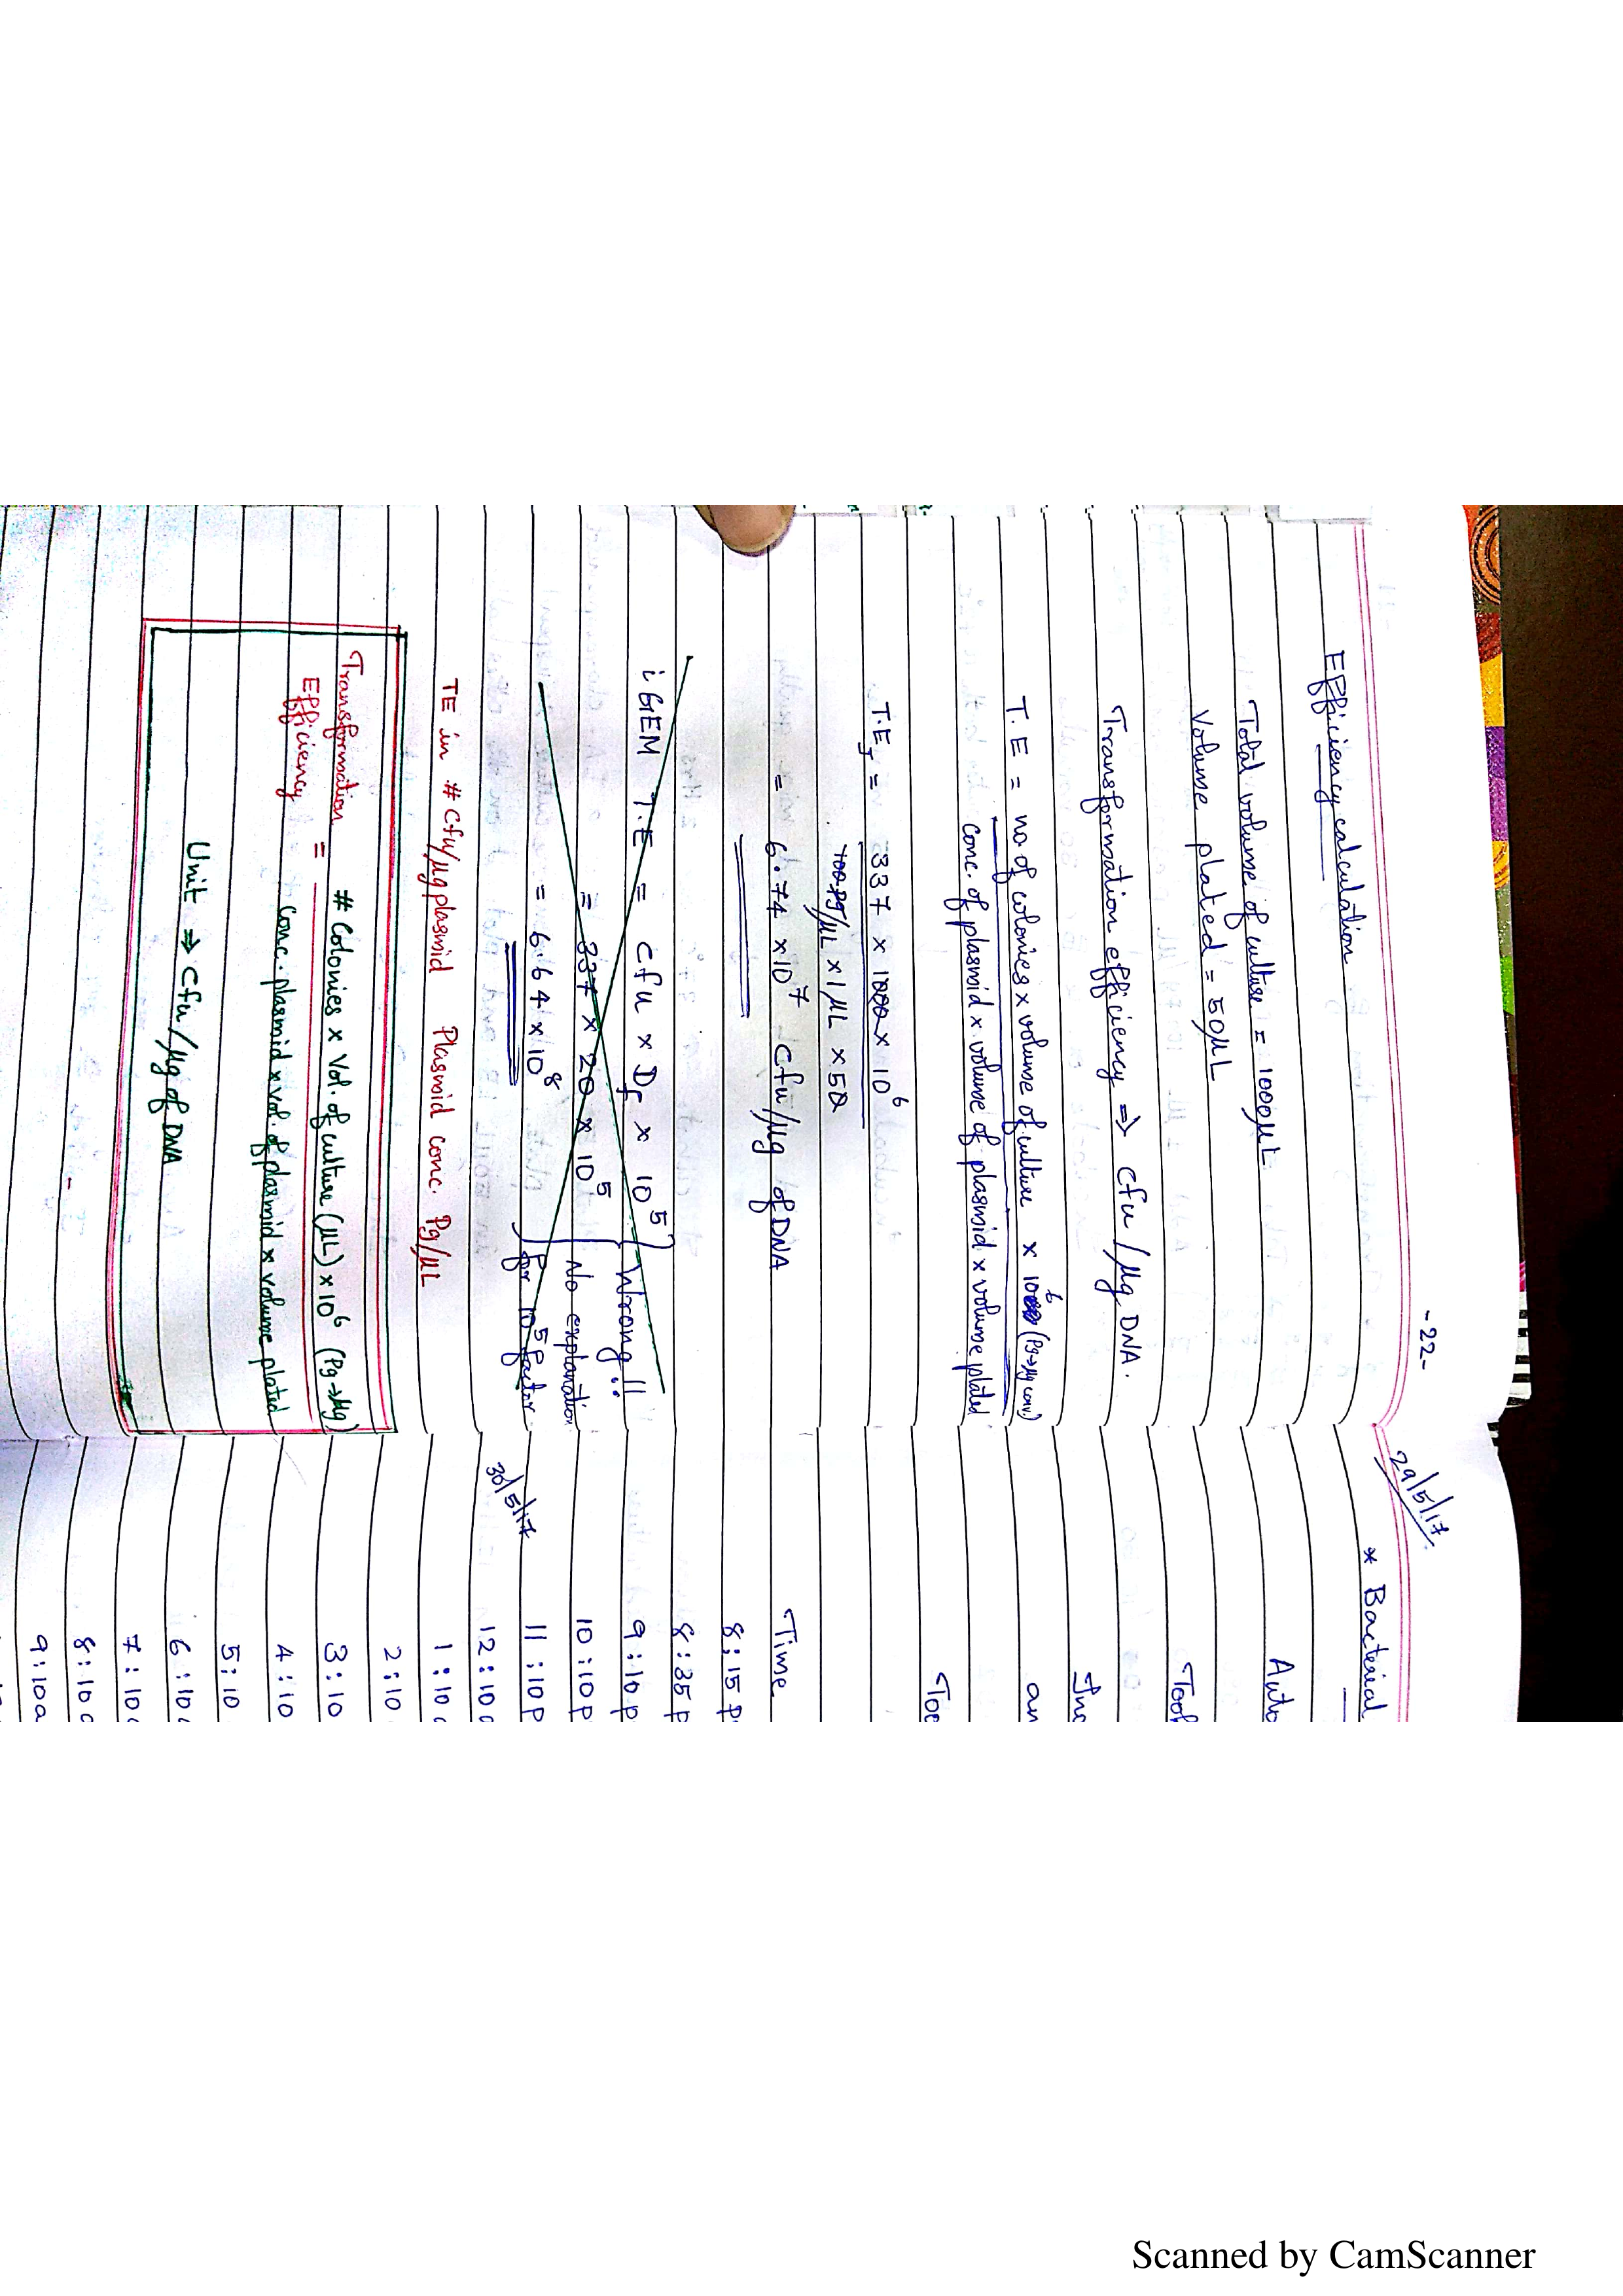 -22-
Efficiency calculation
Total volume of culture = 1000µL
Volume plated = 50µL
Transformation efficiency ⇒ cfu/µg DNA.
T.E = no of colonies x volume of culture x 10⁶ (Pg→µg conv)
conc. of plasmid x volume of plasmid x volume plated
T.E = 337 x 1000 x 10⁶
100 pg/µL x 1 µL x 50
= 6.74 x 10⁷ cfu/µg of DNA
iGEM T.E = cfu x Df x 10⁵
Wrong!!
= 337 x 20 x 10⁵
No explanation
= 6.64 x 10⁸
for 10⁵ factor
TE in # cfu/µg plasmid Plasmid conc. Pg/µL
Transformation Efficiency = # Colonies x Vol. of culture (µL) x 10⁶ (Pg→µg)
conc. plasmid x vol. of plasmid x volume plated
Unit ⇒ cfu/µg of DNA
29/5/17
* Bacterial
Auto
Took
Inc
an
Too
Time
8:15 p
8:35 p
9:10 p
10:10 p
11:10 p
30/5/17
12:10
1:10
2:10
3:10
4:10
5:10
6:10
7:10
8:10
9:10a
Scanned by CamScanner